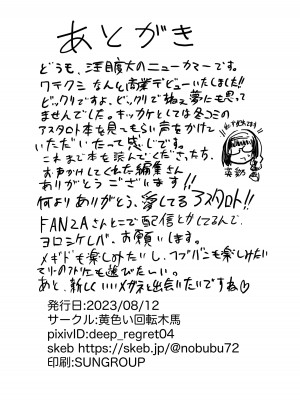 あとがき
どうも、注目度大のニューカマーです。
ワテクシ なんと商業デビューいたしました!!
ビックリですよ、ビックリですねぇ夢にも思って
ませんでした。キッカケとしては冬コミの
アスタロト本を見てもらい声をかけて
いただいたって感じです。
これまで本を読んでくださった方、
お声かけしてくれた編集さん
ありがとうございます!!
何よりありがとう、愛してるアスタロト!!
FANZAさんとこで配信とかしてるんで、
ヨロシケレバ、お願いします。
メギドも楽しみたいし、ブブバンも楽しみたい
あと、新しいメガネと出会いたいですね♡
発行日:2023/08/12
サークル:黄色い回転木馬
pixivID:deep_regret04
skeb https://skeb.jp/@nobubu72
印刷:SUNGROUP